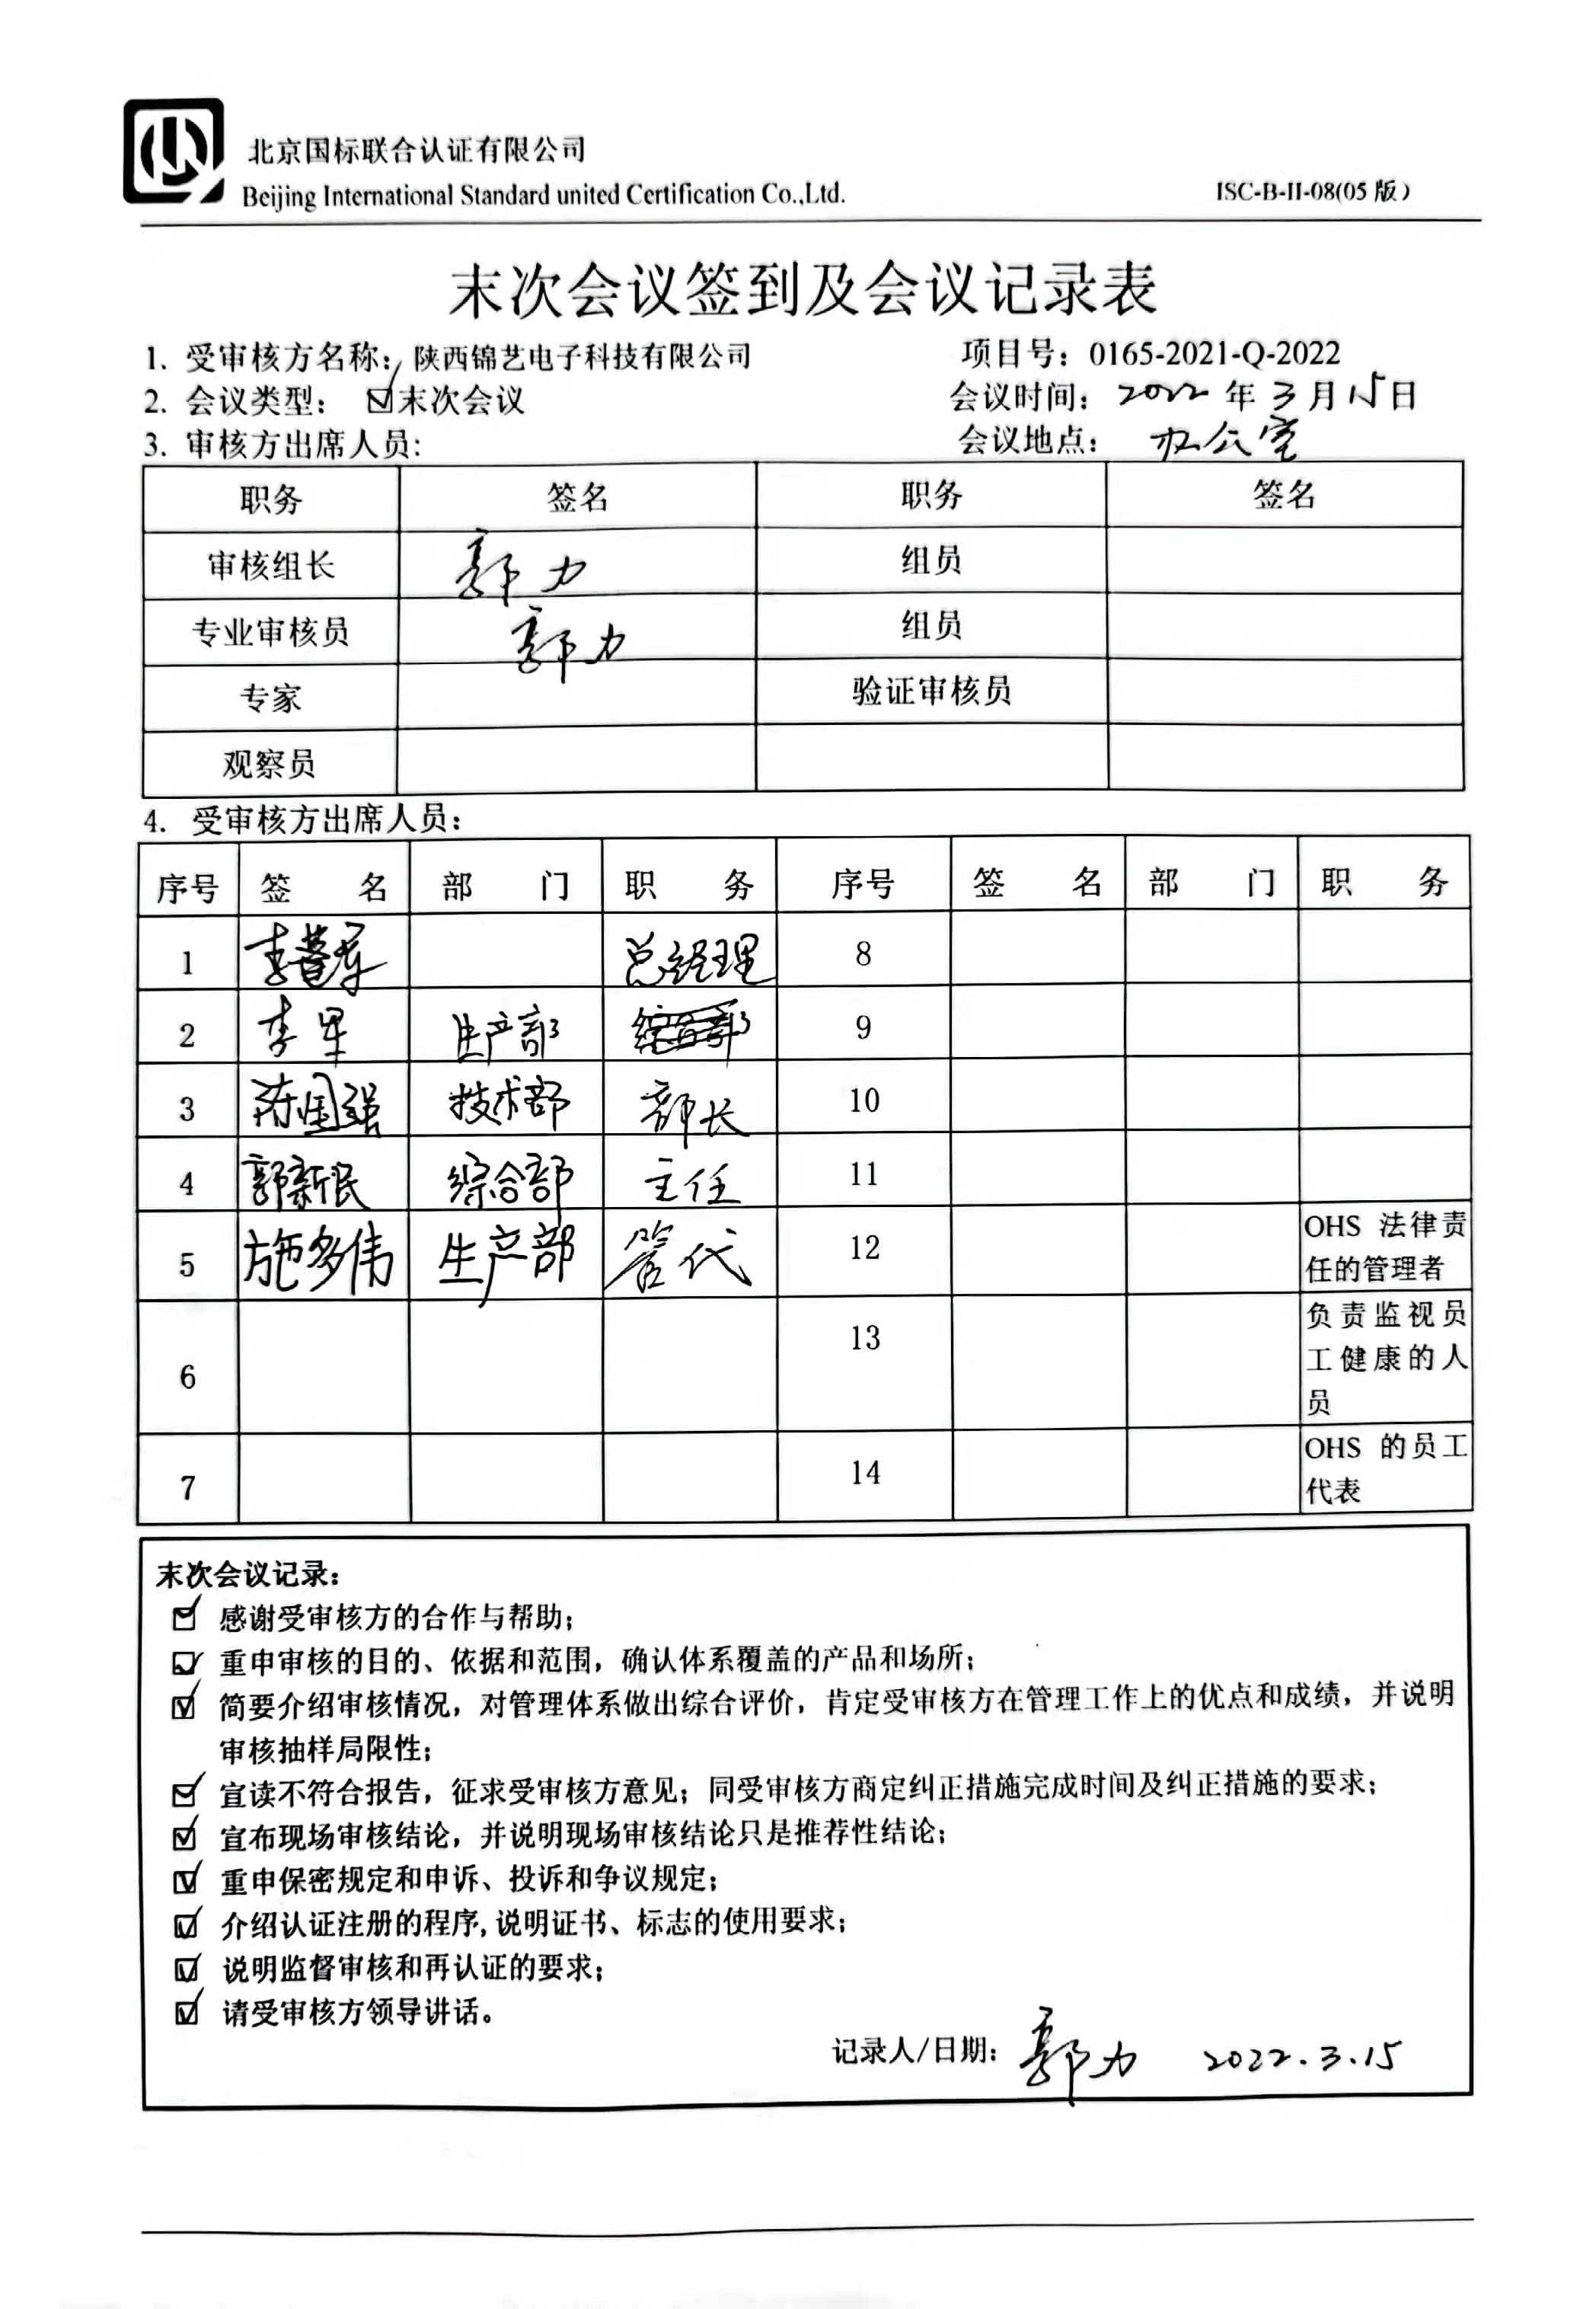 北京国标联合认证有限公司
Beijing International Standard united Certification Co.,Ltd.
ISC-B-II-08(05版)
末次会议签到及会议记录表
1. 受审核方名称: 陕西锦艺电子科技有限公司 项目号: 0165-2021-Q-2022
2. 会议类型: ☑末次会议 会议时间: 2022 年 3 月 15 日
3. 审核方出席人员: 会议地点: 办公室
职务 签名 职务 签名
审核组长 郭力 组员
专业审核员 郭力 组员
专家 验证审核员
观察员
4. 受审核方出席人员:
序号 签 名 部 门 职 务 序号 签 名 部 门 职 务
1 总经理 8
2 李军 生产部 9
3 陈国强 技术部 部长 10
4 郭新民 综合部 主任 11
5 施多伟 生产部 管代 12 OHS 法律责任的管理者
6 13 负责监视员工健康的人员
7 14 OHS 的员工代表
末次会议记录:
☑ 感谢受审核方的合作与帮助;
☑ 重申审核的目的、依据和范围,确认体系覆盖的产品和场所;
☑ 简要介绍审核情况,对管理体系做出综合评价,肯定受审核方在管理工作上的优点和成绩,并说明
审核抽样局限性;
☑ 宣读不符合报告,征求受审核方意见;同受审核方商定纠正措施完成时间及纠正措施的要求;
☑ 宣布现场审核结论,并说明现场审核结论只是推荐性结论;
☑ 重申保密规定和申诉、投诉和争议规定;
☑ 介绍认证注册的程序,说明证书、标志的使用要求;
☑ 说明监督审核和再认证的要求;
☑ 请受审核方领导讲话。
记录人/日期: 郭力 2022.3.15